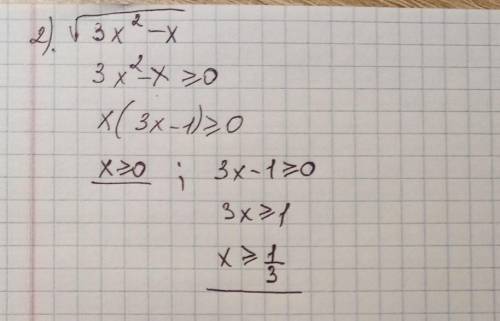 2). √(3x² - x)
3x² - x ≥ 0
x(3x - 1) ≥ 0
x ≥ 0 ; 3x - 1 ≥ 0
3x ≥ 1
x ≥ 1/3